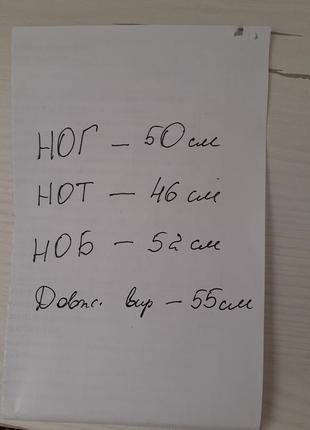 НОГ — 50 см
НОТ — 46 см
НОБ — 52 см
Довж. вир — 55 см